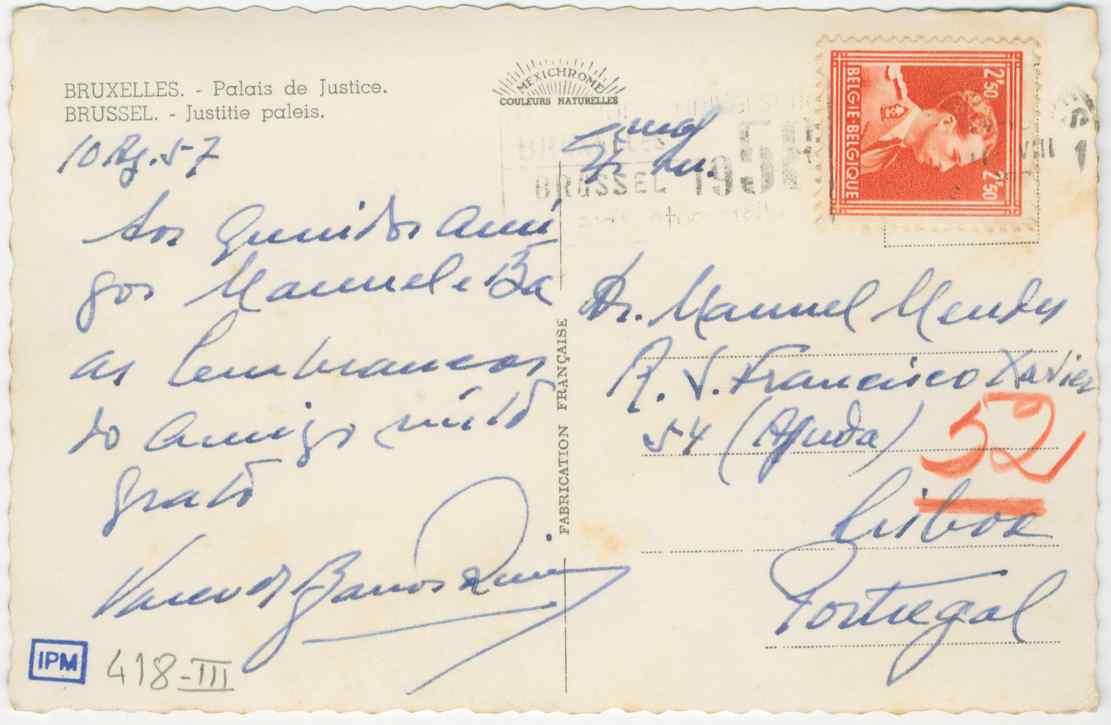 BRUXELLES. - Palais de Justice.
BRUSSEL. - Justitie paleis.
MEXICHROME
COULEURS NATURELLES
10 Ag. 57
Aos queridos ami
gos Manuel e Bá
as lembranças
do amigo muito
grato
Vasco de Barros
FABRICATION FRANÇAISE
BRUSSEL 195
2F50
BELGIE-BELGIQUE
2F50
Dr. Manuel Mendes
R. S. Francisco Xavier
54 (Ajuda)
52
Lisboa
Portugal
IPM
418-III